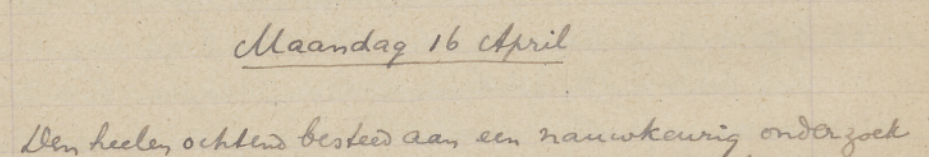 Maandag 16 April
Den heelen ochtend besteed aan een nauwkeurig onderzoek